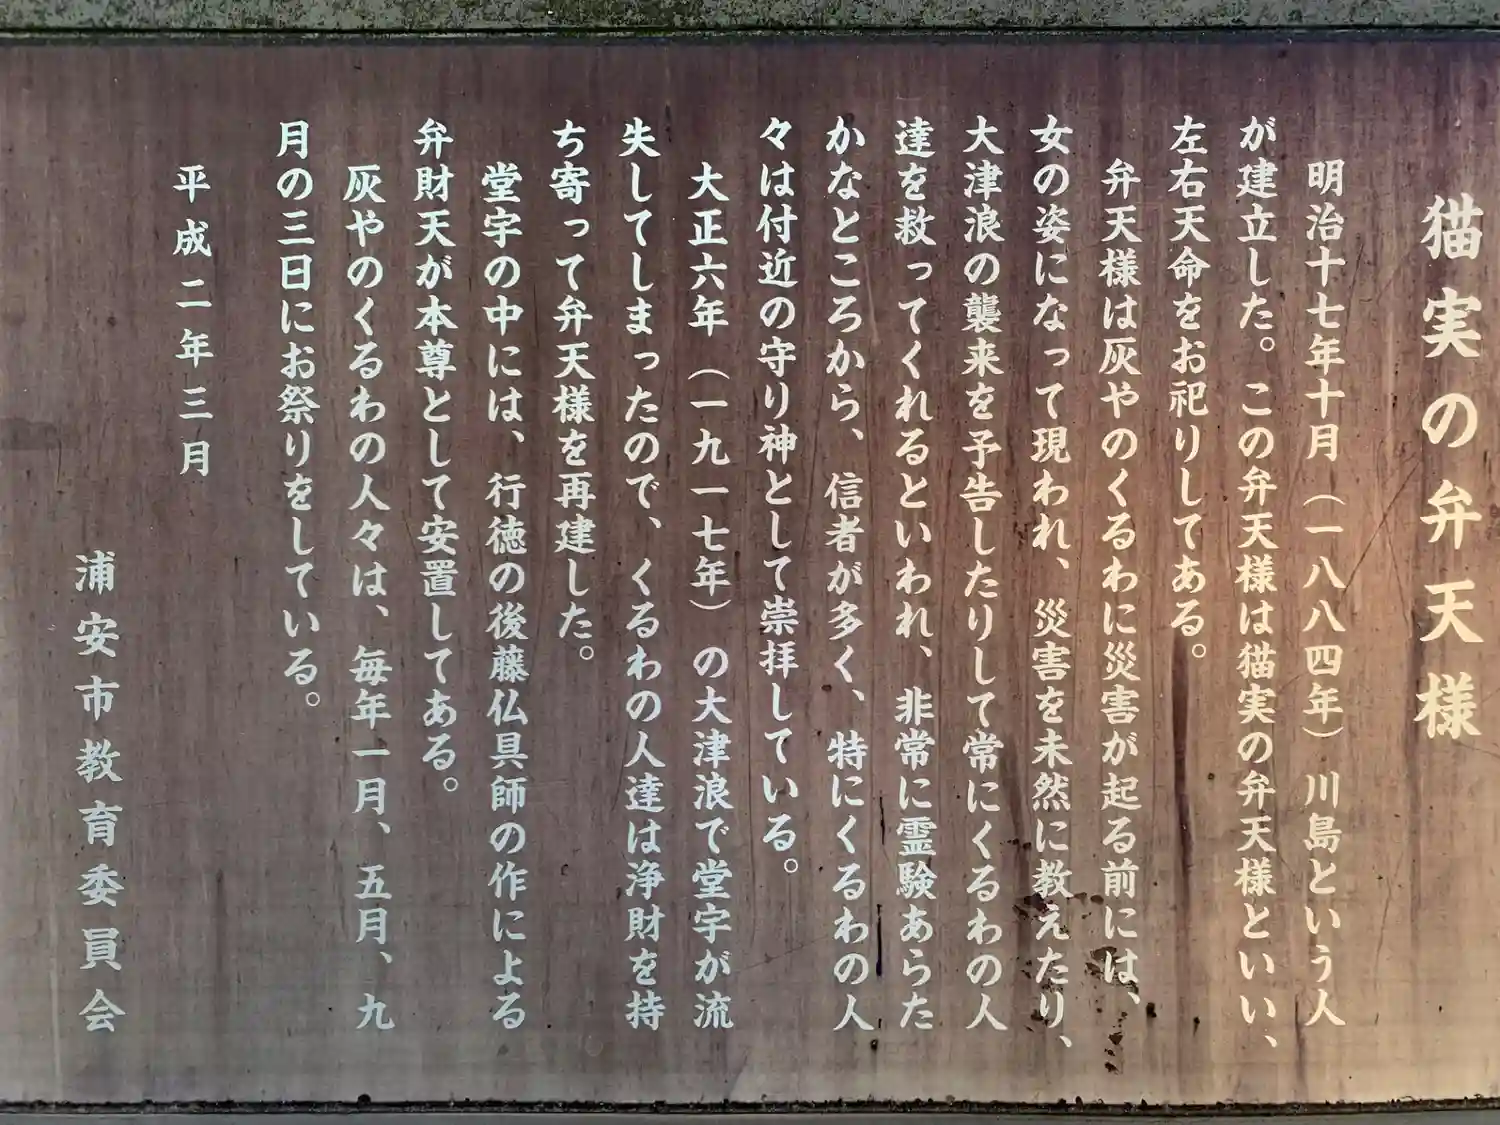 猫実の弁天様
明治十七年十月（一八八四年）川島という人
が建立した。この弁天様は猫実の弁天様といい、
左右天命をお祀りしてある。
弁天様は灰やのくるわに災害が起る前には、
女の姿になって現われ、災害を未然に教えたり、
大津浪の襲来を予告したりして常にくるわの人
達を救ってくれるといわれ、非常に霊験あらた
かなところから、信者が多く、特にくるわの人
々は付近の守り神として崇拝している。
大正六年（一九一七年）の大津浪で堂宇が流
失してしまったので、くるわの人達は浄財を持
ち寄って弁天様を再建した。
堂宇の中には、行徳の後藤仏具師の作による
弁財天が本尊として安置してある。
灰やのくるわの人々は、毎年一月、五月、九
月の三日にお祭りをしている。
平成二年三月
浦安市教育委員会